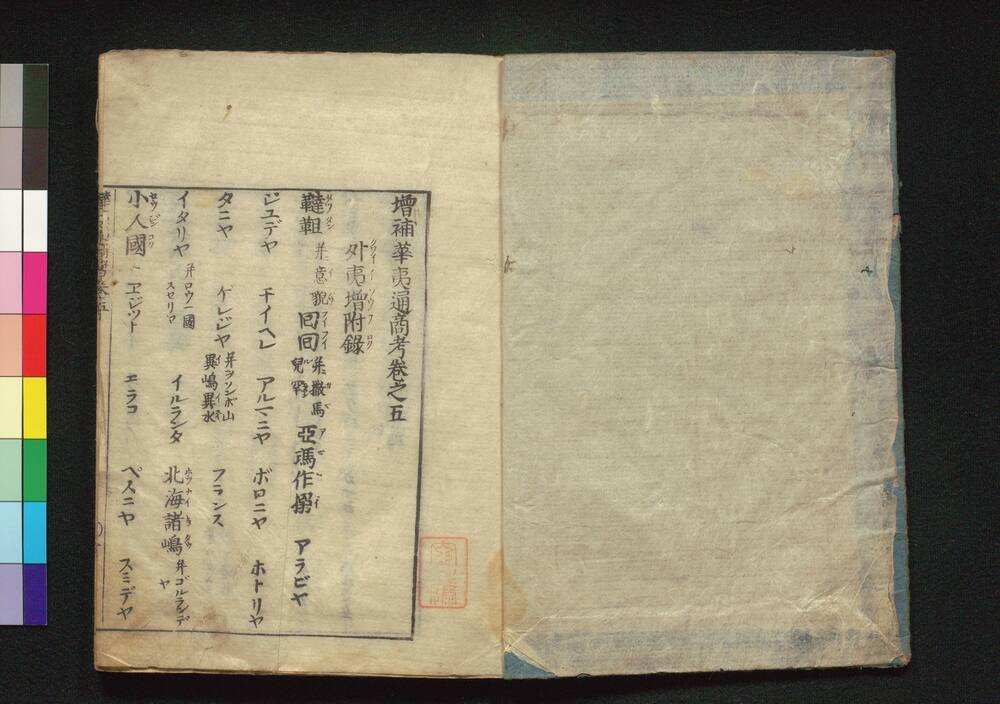 增補華夷通商考卷之五
外夷增附錄
韃靼 并意貌 回回 并撒馬兒罕 亞瑪作搦 アラビヤ
ジユデヤ チイヘレ アルマニヤ ボロニヤ ホトリヤ
タニヤ ゲレジヤ 并ヲソンボ山異嶋異水 フランス
イタリヤ 并ロウマ國スセリヤ イルランタ 北海諸嶋 并ゴルランデヤ
小人國 ヱジツト エラコ ペスニヤ スミデヤ